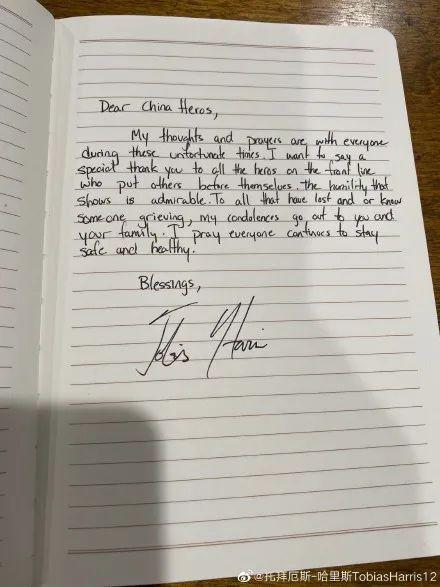 Dear China Heros,
My thoughts and prayers are with everyone
during these unfortunate times. I want to say a
special thank you to all the heros on the front line
who put others before themselves. the humility that
shows is admirable. To all that have lost and or know
someone grieving, my condolences go out to you and
your family. I pray everyone continues to stay
safe and healthy.
Blessings,
Tobias Harris
@托拜厄斯-哈里斯TobiasHarris12